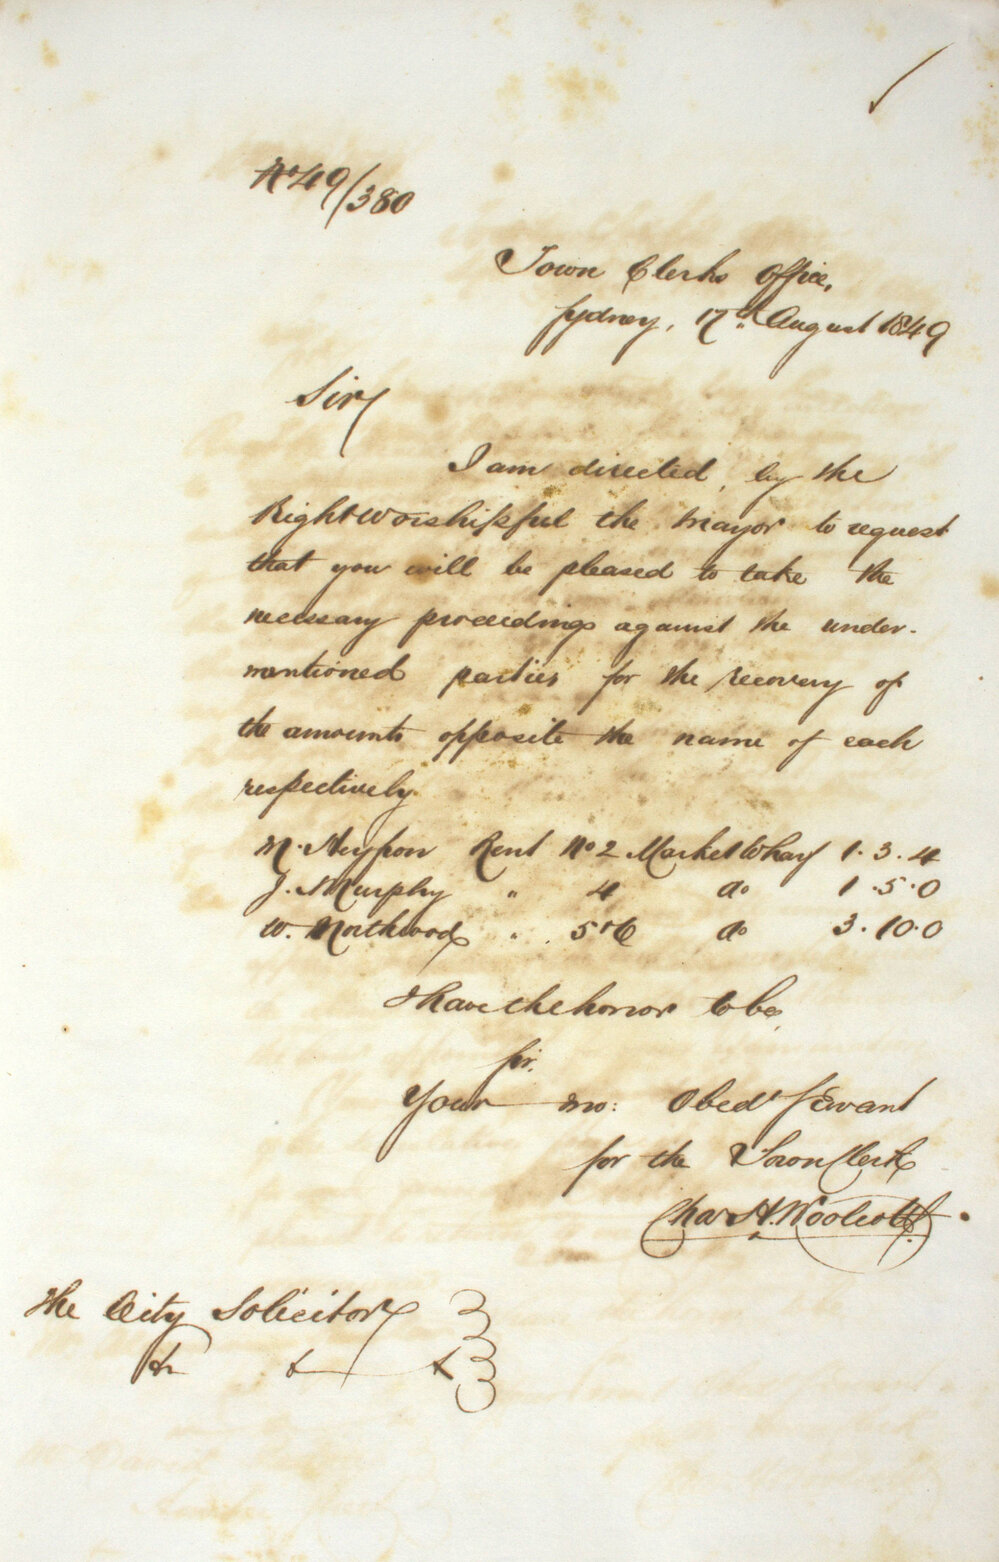 No 49/380
Town Clerks Office,
Sydney, 17th August 1849
Sir,
I am directed, by the
Right Worshipful the Mayor to request
that you will be pleased to take the
necessary proceedings against the under-
mentioned parties for the recovery of
the amounts opposite the name of each
respectively.
M. Rent No 2 Market Wharf 1.3.4
J. Murphy " 4 do 1.5.0
W. Northwood " 5 & 6 do 3.10.0
I have the honor to be,
Sir,
Your mo: Obedt Servant
for the Town Clerk
Chas H. Woolcott
The City Solicitor
&c & &